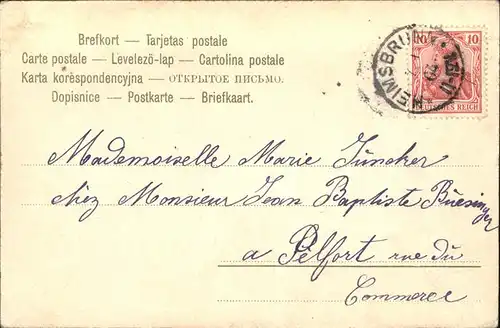 Brefkort — Tarjetas postale
Carte postale — Levelező-lap — Cartolina postale
Karta korespondencyjna — ОТКРЫТОЕ ПИСЬМО.
Dopisnice — Postkarte — Briefkaart.
10 10
HEIMSBRUNN
DEUTSCHES REICH
Mademoiselle Marie Juncker
chez Monsieur Jean Baptiste Buesinger
a Pelfort rue du
Commerce